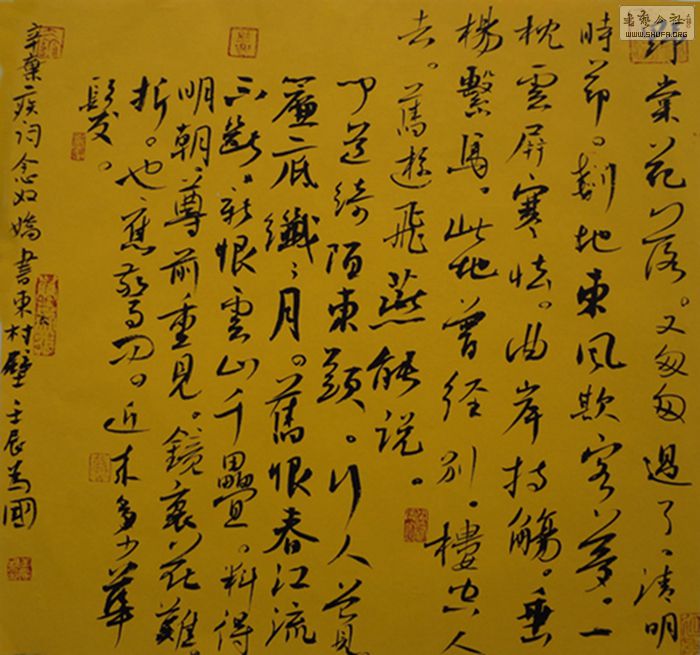 野棠花落。又匆匆過了、清明
時節。剗地東風欺客夢。一
枕雲屏寒怯。曲岸持觴。垂
楊繫馬。此地曾经别。樓空人
去。舊遊飛燕能說。
聞道綺陌東頭。行人曾見
簾底纖々月。舊恨春江流
不斷。新恨雲山千疊。料得
明朝、尊前重見。鏡裏花難
折。也應驚問。近來多少華
髮。
辛棄疾词念奴嬌書東村壁 壬辰为國
書藝公社
WWW.SHUFA.ORG